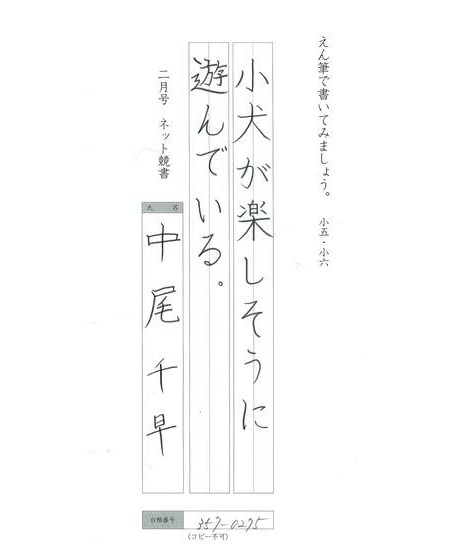 えん筆で書いてみましょう。 小五・小六
小犬が楽しそうに
遊んでいる。
二月号 ネット競書
氏名
中尾千早
合格番号 359-0295
(コピー不可)